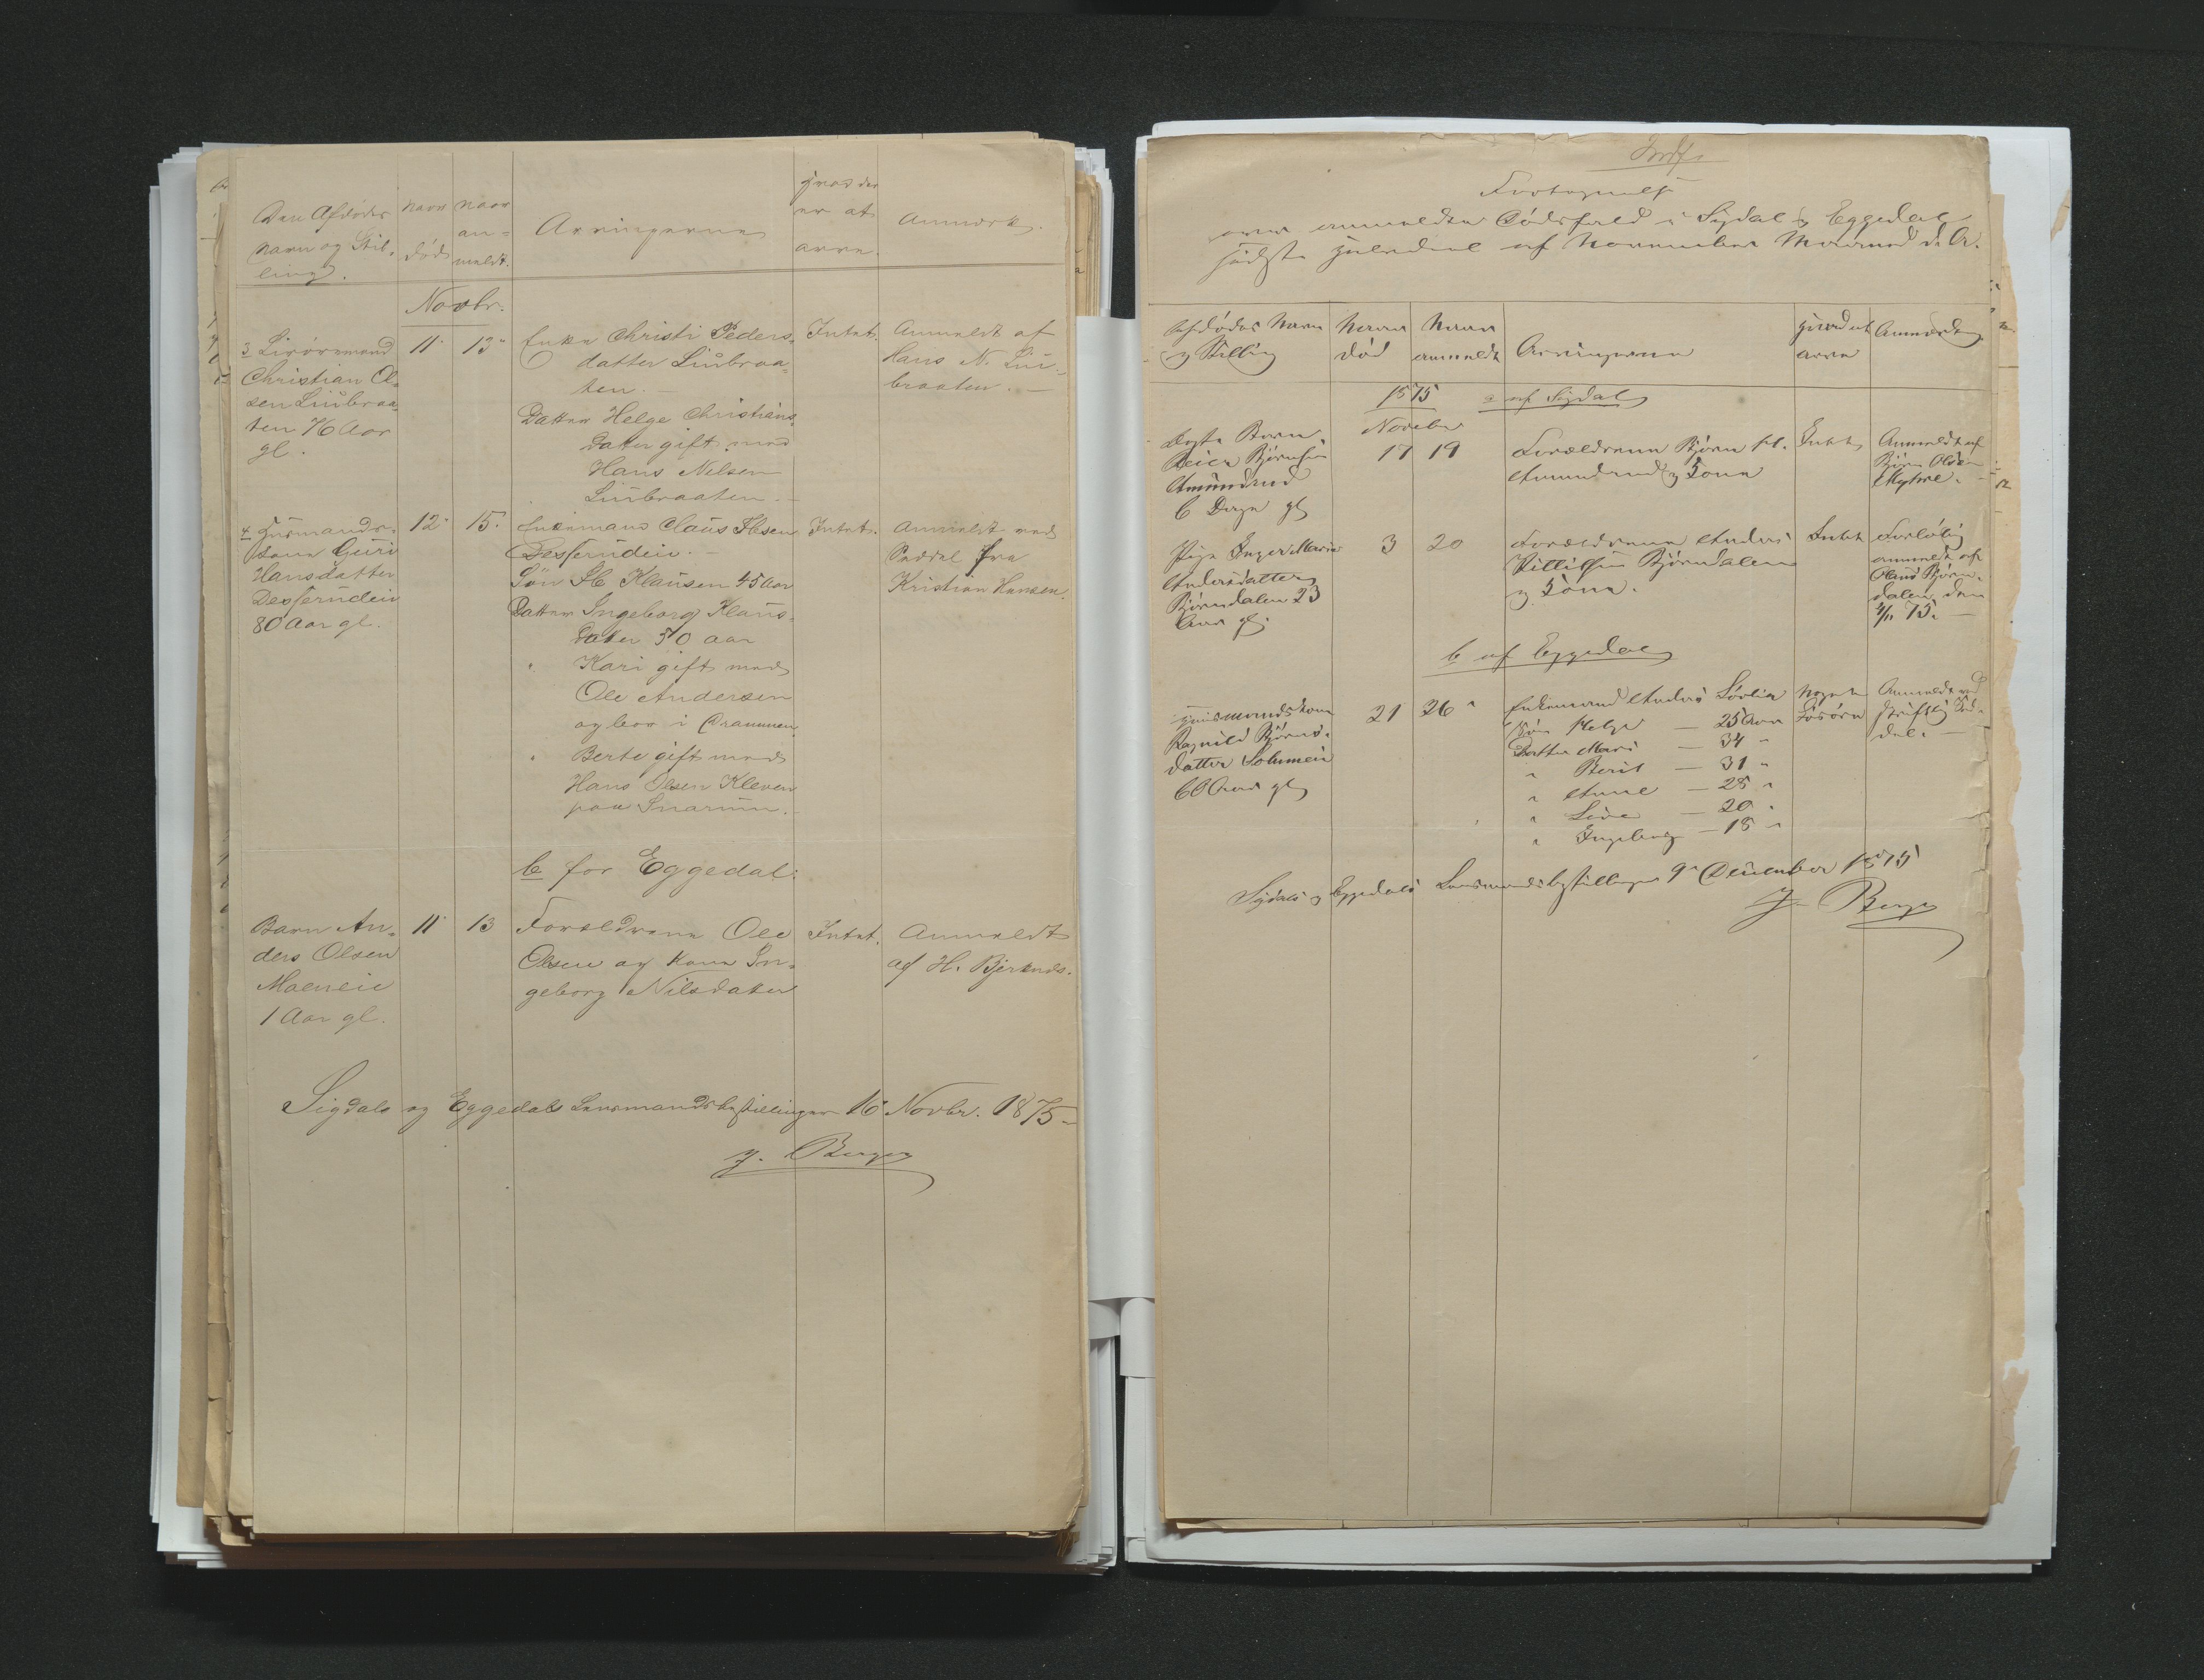 Den Afdødes
Navn og Stil-
ling.
Naar
død
Naar
an-
meldt.
Arvingerne
Hvad der
er at
arve.
Anmærk.
Novbr.
3 Livøremand
Christian Ol-
sen Liubraa-
ten 76 Aar
gl.
11
13
Enke Christi Peders-
datter Liubraa-
ten.
Datter Helge Christians-
datter gift med
Hans Nilsen
Liubraaten.
Intet.
Anmeldt af
Hans N. Liu-
braaten.
4 Husmands-
kone Guri
Hansdatter
Desserudeie
80 Aar gl.
12
15.
Enkemand Claus Ibsen
Desserudeie.
Søn Ib Klausen 45 Aar
Datter Ingeborg Klaus-
datter 50 aar
" Kari gift med
Ole Andersen
og bor i Drammen.
" Berte gift med
Hans Olsen Kleven
paa Snarum.
Intet.
Anmeldt ved
Seddel fra
Kristian Hansen.
b for Eggedal:
Barn An-
ders Olsen
Moeneie
1 Aar gl.
11
13
Forældrene Ole
Olsen og Kone In-
geborg Nilsdatter
Intet.
Anmeldt
af H. Bjerknes.
Sigdals og Eggedals Lensmandsbestillinger 16 Novbr. 1875
J. Berger
Fortegnelse
over anmeldte Dødsfald i Sigdal og Eggedal
sidste Halvdeel af November Maaned d. A.
Afdødes Navn
og Stilling
Naar
død
Naar
anmeldt
Arvingerne
Hvad at
arve
Anmærkn.
1875
November
a af Sigdal
Døpte Barn
Beier Bjørnsen
Amundrud
6 Dage gl
17
19
Forældrene Bjørn H.
Amundrud og Kone
Intet
Anmeldt af
Bjørn Olsen
Myhre.
Pige Inger Marie
Andersdatter
Bjørndalen 23
Aar gl.
3
20
Forældrene Anders
Kittilsen Bjørndalen
og Kone.
Intet
Forløbig
anmeldt af
Olaus Bjørn-
dalen den
4/11 75.
b af Eggedal
Husmandskone
Ragnild Bjørns-
datter Solumeie
60 Aar gl
21
26
Enkemand Anders Sørlie
Søn Helge — 25 Aar
Datter Mari — 34 "
" Berit — 31 "
" Anne — 28 "
" Live — 20 "
" Ingeborg — 18 "
Noget
Løsøre
Anmeldt ved
skriftlig Sed-
del.
Sigdals og Eggedals Lensmandsbestillinger 9 December 1875
J. Berger